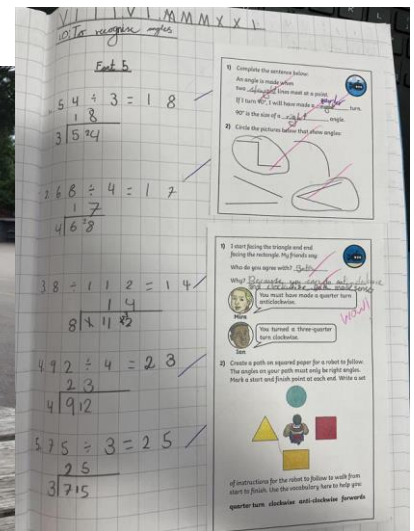 V I I I V I MMM X X I
LO: To recognise angles
Fast 5
54 ÷ 3 = 18
18
3 5 24
2 68 ÷ 4 = 17
17
4 6 28
3 8 ÷ 112 = 14
14
8 1 11 32
4. 92 ÷ 4 = 23
23
4 9 12
5. 75 ÷ 3 = 25
25
3 7 15
1) Complete the sentence below:
An angle is made when
two straight lines meet at a point.
If I turn 90°, I will have made a quarter turn.
90° is the size of a right angle.
2) Circle the pictures below that show angles
1) I start facing the triangle end end
facing the rectangle. My friends say:
Who do you agree with? Both
Why? Because you can do anti clockwise
and clockwise both
You must have made a quarter turn
anticlockwise.
Mira
You turned a three-quarter
turn clockwise.
Ian
wow!
2) Create a path on squared paper for a robot to follow.
The angles on your path must only be right angles.
Mark a start and finish point at each end. Write a set
of instructions for the robot to follow to walk from
start to finish. Use the vocabulary here to help you
quarter turn clockwise anti-clockwise forwards